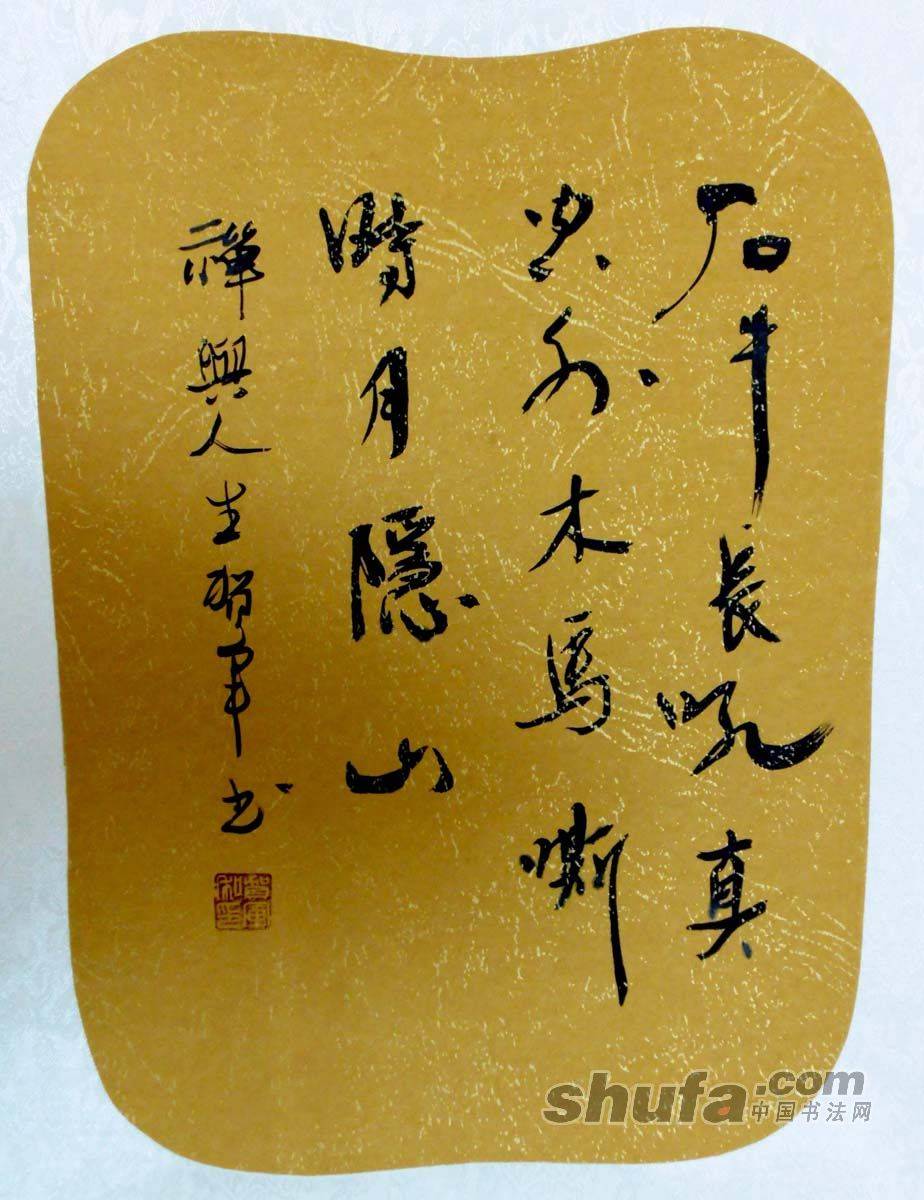 石牛長吼真
空外木馬嘶
時月隱山
禪與人生智軍书
shufa.com
中国书法网